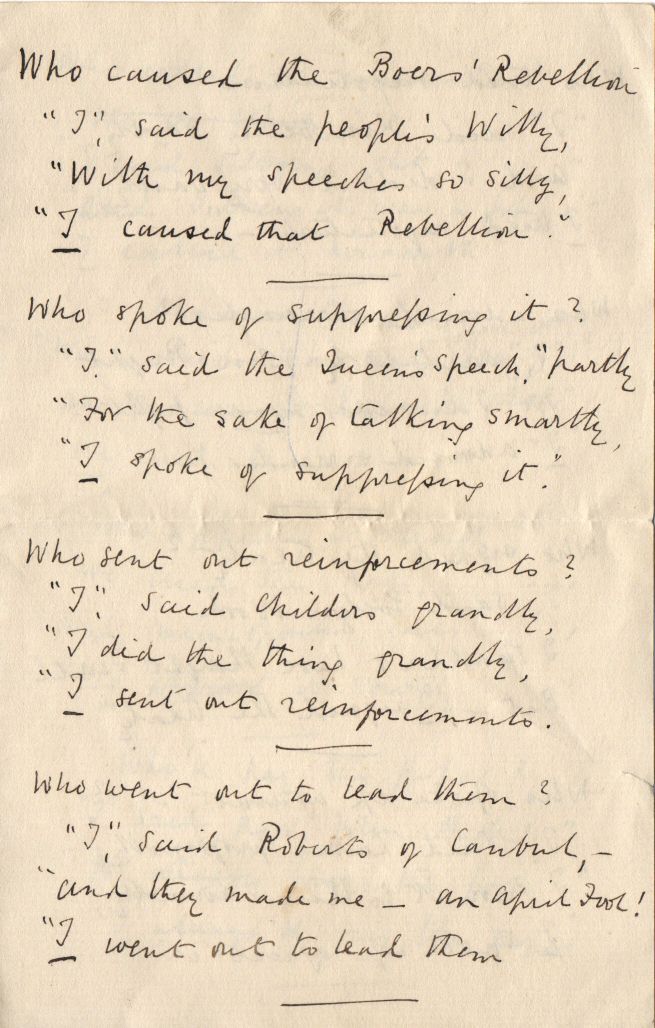 Who caused the Boers' Rebellion
"I", said the people's Willy,
"With my speeches so silly,
"I caused that Rebellion."
Who spoke of suppressing it?
"I." said the Queen's Speech, "partly
"For the sake of talking smartly,
"I spoke of suppressing it."
Who sent out reinforcements?
"I", said Childers grandly,
"I did the thing grandly,
"I sent out reinforcements.
Who went out to lead them?
"I", said Roberts of Caubul, –
"and they made me – an April Fool!
"I went out to lead them